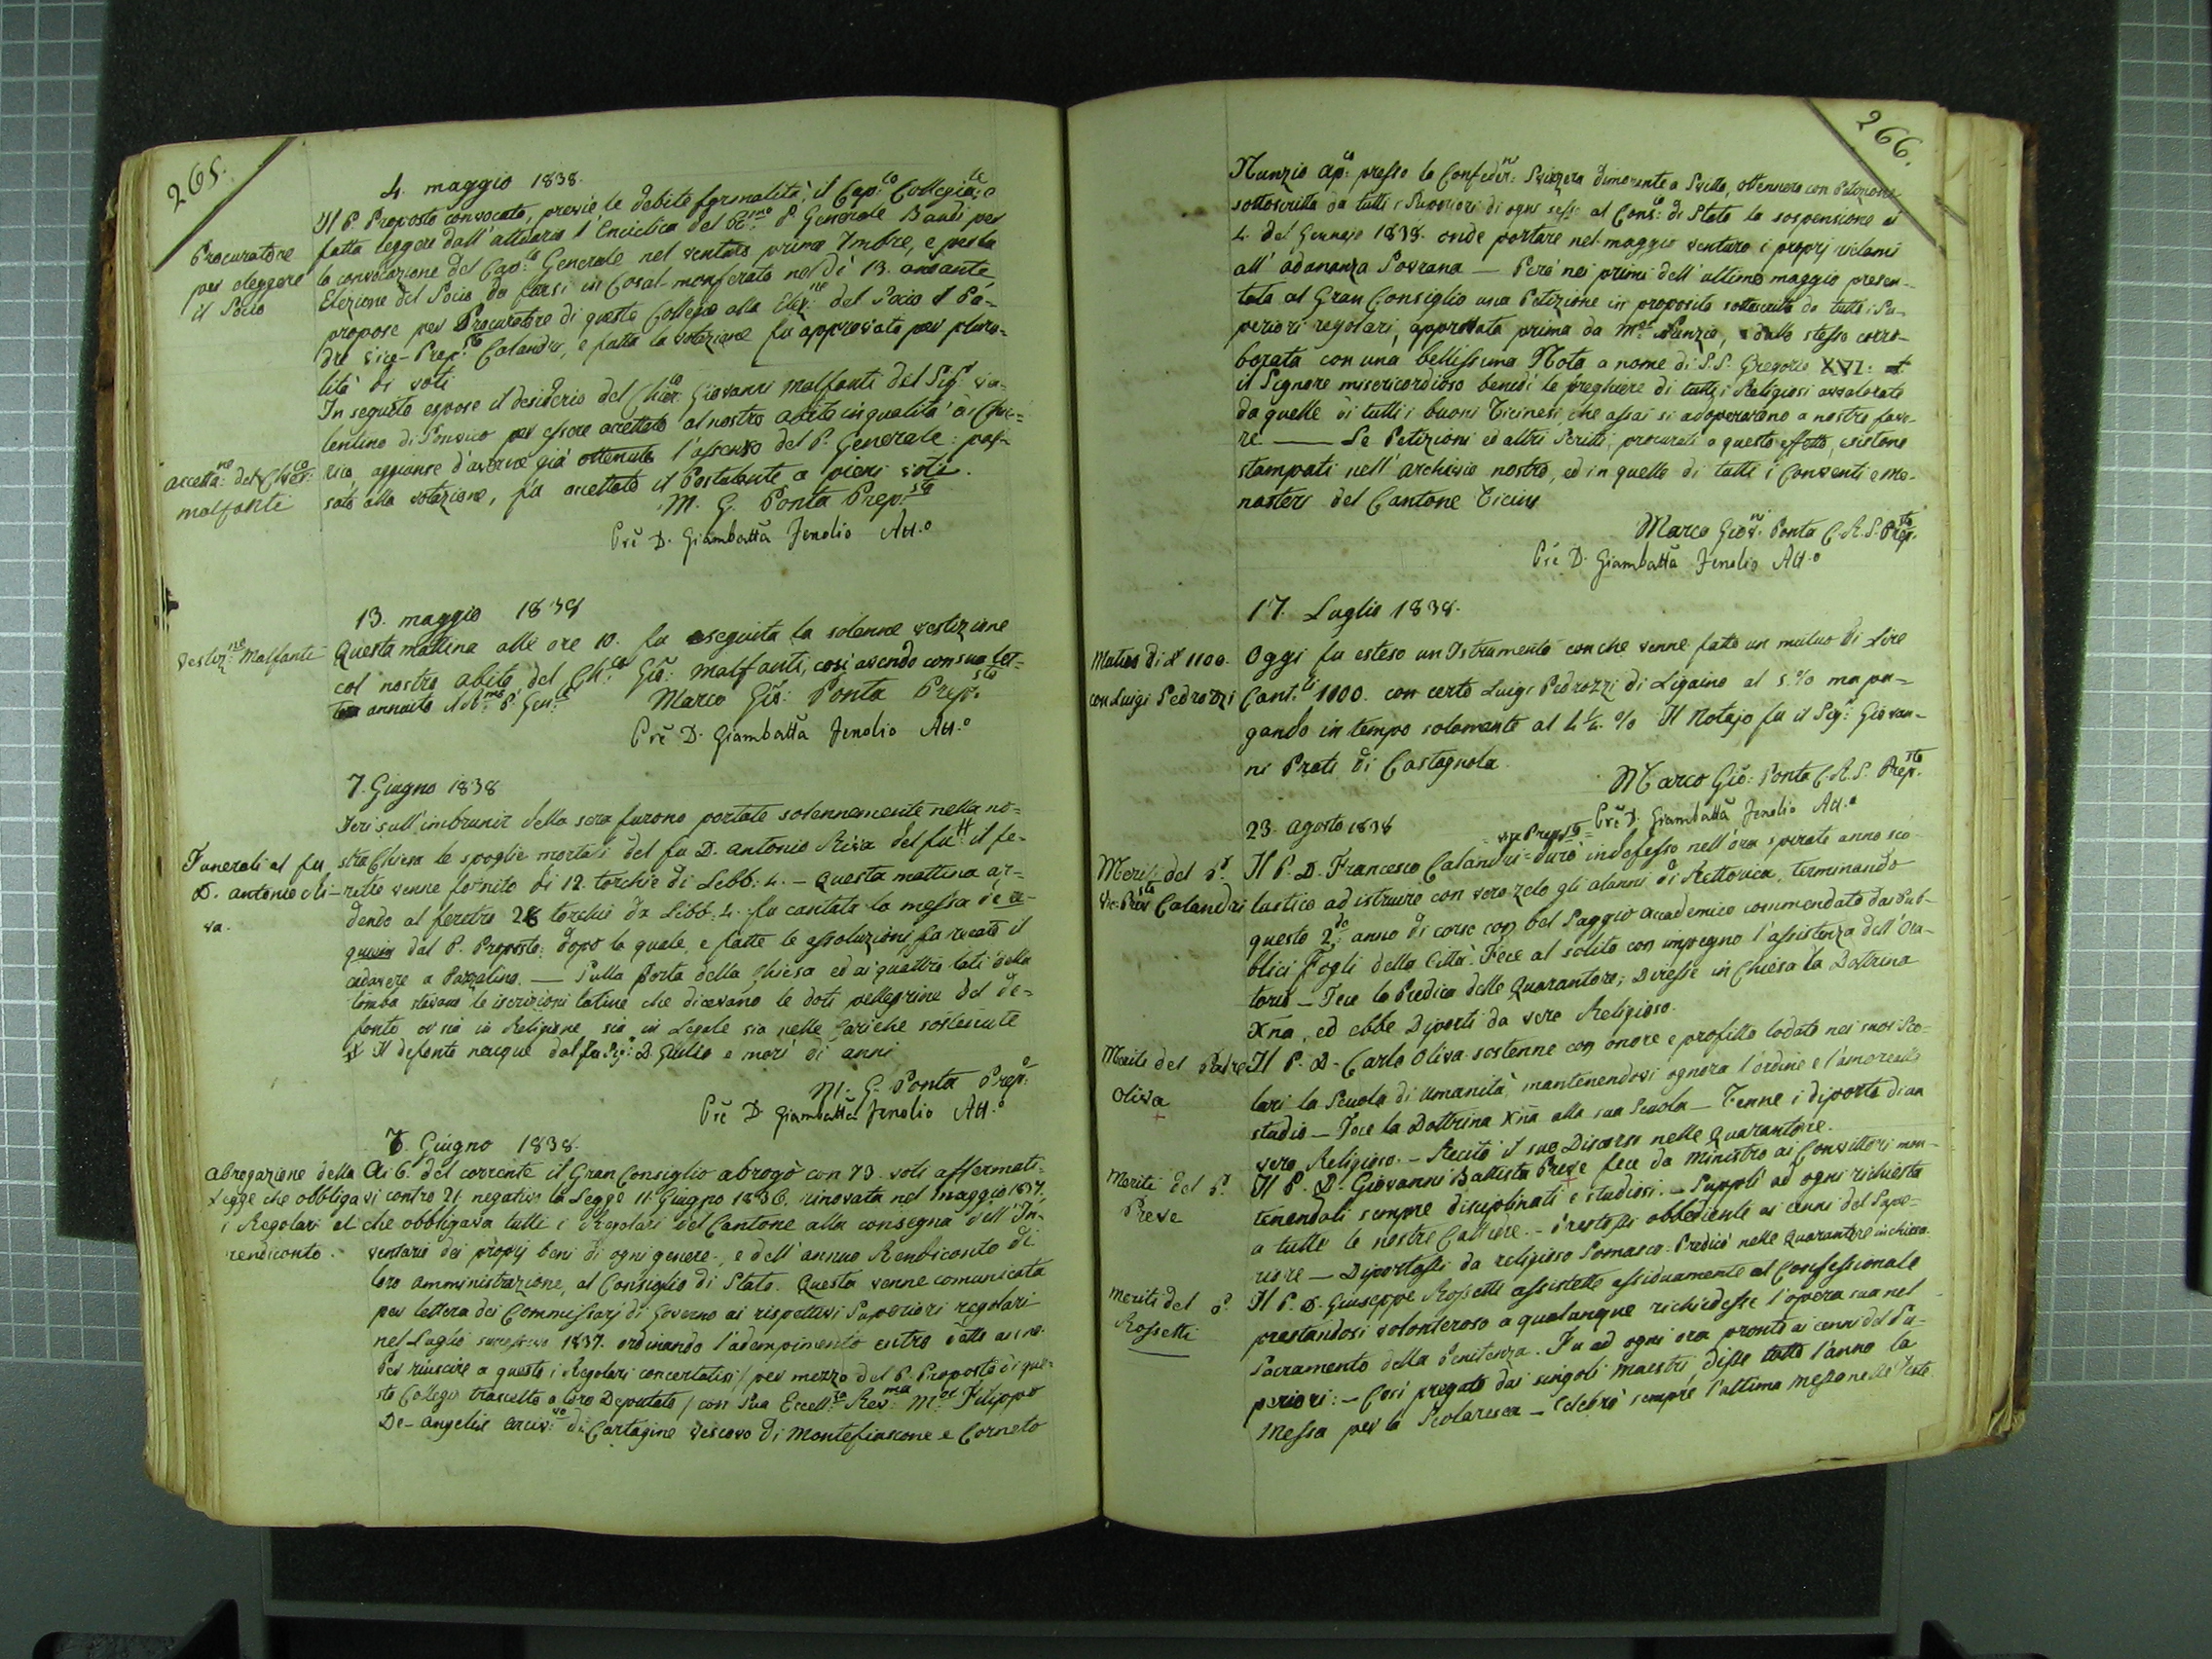 265.
4. maggio 1838.
Il P. Proposto convocato, previe le debite formalità, il Cap:lo Collegiale, e
Procuratore
per eleggere
il Socio
fatta leggere dall'attuario l'Enciclica del Rmo P. Generale Baudi per
la convocazione del Cap:lo Generale nel venturo primo 7mbre, e per la
Elezione del Socio da farsi in Casal-monferato nel dì 13. andante
propose per Procuratore di questo Collegio alla Elez:ne del Socio il Pa=
dre Vice-Prep:sto Calandri, e fatta la votazione fu approvato per plura=
lità di voti
In seguito espose il desiderio del Chier:co Giovanni Malfanti del Sig:r Va=
lentino di Sonvico per essere accettato al nostro abito in qualità di Chie=
accetta:ne del Chier:co
malfanti
rico, aggiunse d'averne già ottenuto l'assenso del P. Generale: pas=
sato alla votazione, fu accettato il Postulante a pieni voti.
M. G. Ponta Prep:sto
Pre D. Giambatta Fenolio Att.o
13. maggio 1838
Vestiz:ne Malfanti
Questa mattina alle ore 10. fu eseguita la solenne vestizione
col nostro abito del Ch:co Gio: Malfanti, così avendo con sua let=
tera annuito il Rmo P. Gen:le
Marco Gio: Ponta Prep:sto
Pre D. Giambatta Fenolio Att.o
7. Giugno 1838
Jeri sull'imbrunir della sera furono portate solennemente nella no=
Funerali al fu
D. Antonio Ri=
va.
stra Chiesa le spoglie mortali del fu D. Antonio Riva del fu # il fe=
retro venne fornito di 12. torchie di Lebb: 4. - Questa mattina ar=
dendo al feretro 28 torchie da Libb. 4. fu cantata la messa de re=
quiem dal P. Proposto: dopo la quale, e fatte le assoluzioni fu recato il
cadavere a Pazzalino. — Sulla Porta della Chiesa ed ai quattro lati della
tomba stavano le iscrizioni latine che dicevano le doti pellegrine del de=
fonto or sia in Religione, sia in Legale sia nelle Cariche sostenute
# Il defonto nacque dal fu Sig:r D. Giulio e morì di anni
M. G. Ponta Prep:o
Pre D. Giambatta Fenolio Att.o
7. Giugno 1838.
Abrogazione della
Legge che obbliga
i Regolari al
rendiconto.
Ai 6. del corrente il Gran Consiglio abrogò con 73. voti affermati=
vi contro 21. negativi la Legge 11 Giugno 1836. rinovata nel maggio 1837.
che obbligava tutti i Regolari del Cantone alla consegna dell'In=
ventario dei proprj beni di ogni genere, e dell'annuo Rendiconto di
loro amministrazione, al Consiglio di Stato. Questa venne comunicata
per lettera dei Commissarj di Governo ai rispettivi Superiori regolari
nel Luglio successivo 1837. ordinando l'adempimento entro detto anno.
Per riuscire a questo i Regolari concertatisi / per mezzo del P. Proposto di que=
sto Collegio trascelto a loro Deputato / con Sua Eccell:za Rev:ma M:or Filippo
De-Angelis Arciv:vo di Cartagine Vescovo di Montefiascone e Corneto
266.
Nunzio Ap:co presso la Confeder:ne Svizzera dimorante a Svitto, ottennero con Petizione
sottoscritta da tutti i Superiori di ogni sesso al Cons:o di Stato la sospensione ai
4. del Gennajo 1838. onde portare nel maggio venturo i proprj riclami
all'adunanza Sovrana — Però nei primi dell'ultimo maggio presen=
tata al Gran Consiglio una Petizione in proposito sottoscritta da tutti i Su=
periori regolari, approvata prima da M:or Nunzio, e dallo stesso corro=
borata con una bellissima Nota a nome di S.S. Gregorio XVI:
il Signore misericordioso benedì le preghiere di tutti i Religiosi avvalorate
da quelle di tutti i buoni Ticinesi, che assai si adoperarono a nostro favo=
re — Le Petizioni ed altri Scritti, procurati a questo effetto, esistono
stampati nell'archivio nostro, ed in quello di tutti i Conventi e Mo=
nasteri del Cantone Ticino
Marco Giov:ni Ponta C.R.S. Prep:sto
Pre D. Giambatta Fenolio Att.o
17. Luglio 1838.
Mutuo di £ 1100.
con Luigi Pedrozzi
Oggi fu esteso un Istrumento con che venne fatto un mutuo di Lire
Cant:li 1100. con certo Luigi Pedrozzi di Ligaino al 5. % ma pa=
gando in tempo solamente al 4 1/2 % Il Notajo fu il Sig:r Giovan=
ni Prati di Castagnola.
Marco Gio: Ponta C.R.S. Prep:sto
Pre D. Giambatta Fenolio Att.o
23. Agosto 1838
= Vice Prep:sto =
Meriti del P.
Vic:Prep:sto Calandri
Il P. D. Francesco Calandri = durò indefesso nell'ora spirato anno sco=
lastico ad istruire con vero zelo gli alunni di Rettorica, terminando
questo 2:do anno di corso con bel Saggio accademico commendato dai Pub=
blici Fogli della Città. Fece al solito con impegno l'assistenza dell'Ora=
torio — Fece la Predica delle Quarantore; Diresse in Chiesa la Dottrina
Xna, ed ebbe Diporti da vero Religioso.
Meriti del Padre
Oliva
Il P. D. Carlo Oliva sostenne con onore e profitto lodato nei suoi Sco=
lari la Scuola di Umanità, mantenendovi ognora l'ordine e l'amore allo
studio — Fece la Dottrina Xna alla sua Scuola — Tenne i diporti di un
vero Religioso. - Recitò il suo Discorso nelle Quarantore.
Meriti del P.
Preve
Il P. D. Giovanni Battista Preve fece da Ministro ai Convittori man=
tenendoli sempre disciplinati e studiosi. - Supplì ad ogni richiesta
a tutte le nostre Cattedre. - Prestossi obbediente ai cenni del Supe=
riore — Diportossi da religioso Somasco - Predicò nelle Quarantore in chiesa.
Meriti del P.
Rossetti
Il P. D. Giuseppe Rossetti assistette assiduamente al Confessionale
prestandosi volonteroso a qualunque richiedesse l'opera sua nel
Sacramento della Penitenza. Fu ad ogni ora pronto ai cenni del Su=
periori: - Così pregato dai singoli maestri, disse tutto l'anno la
Messa per la Scolaresca — Celebrò sempre l'ultima Messa nelle Feste.